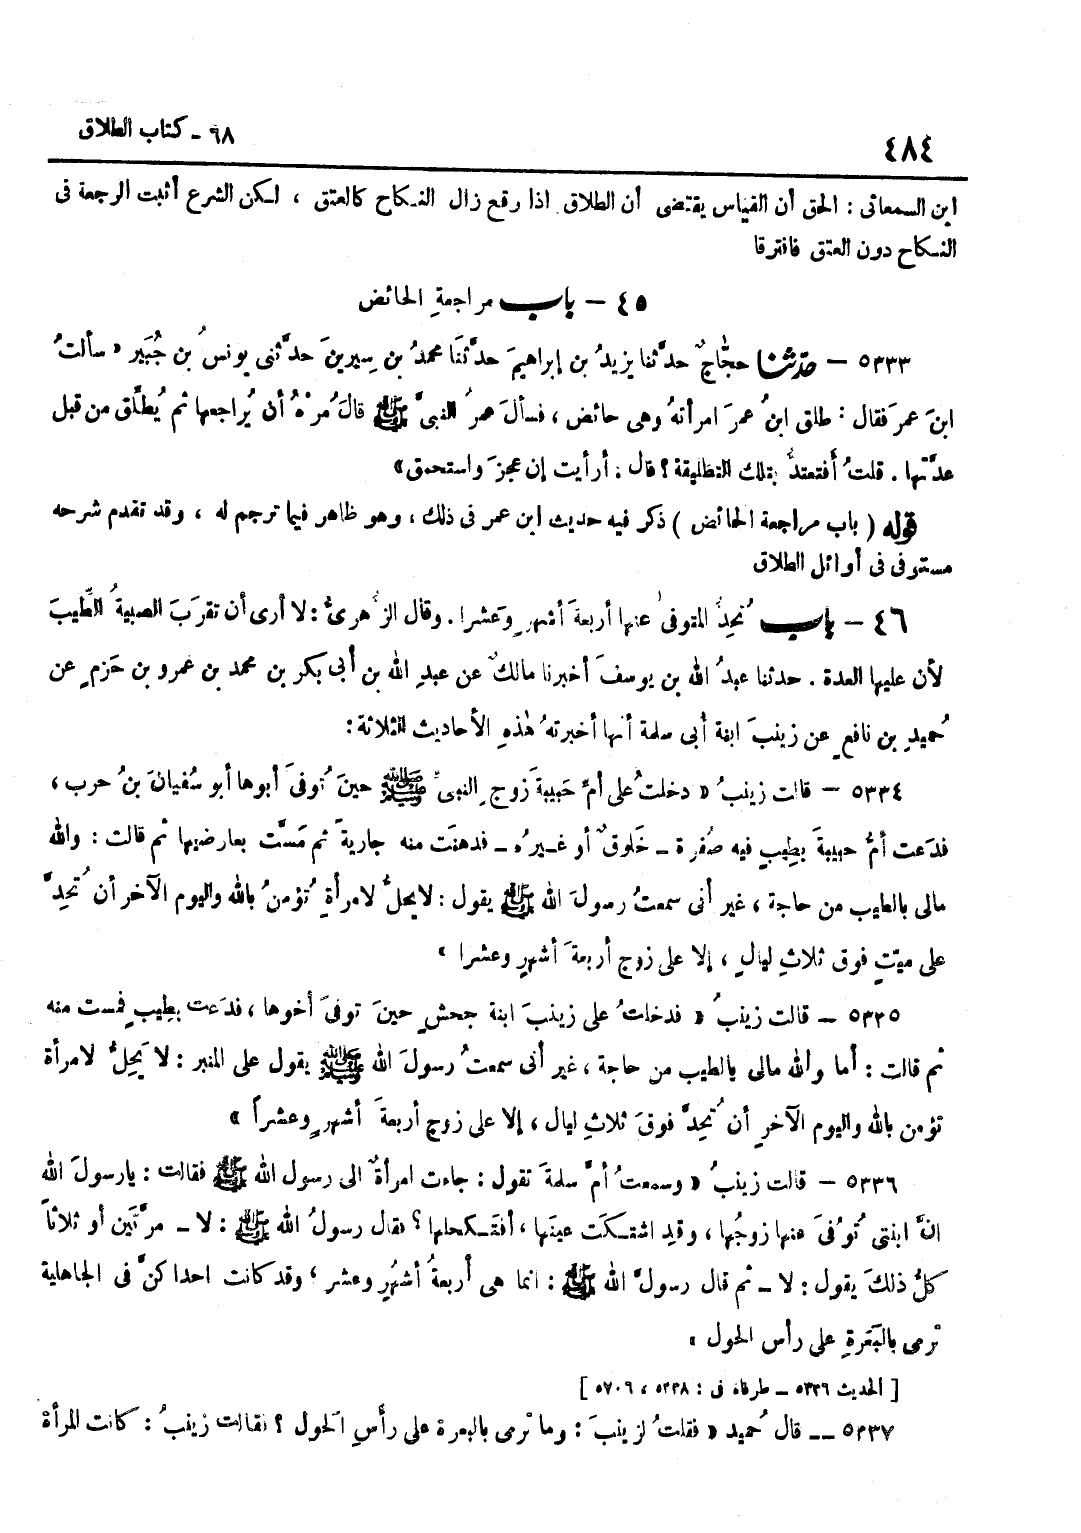 ٤٨٤ ٦٨ ـ كتاب الطلاق
ابن السمعانى : الحق أن القياس يقتضى أن الطلاق اذا وقع زال النكاح كالعتق ، لكن الشرع أثبت الرجعة فى
النكاح دون العتق فافترقا
٤٥ – باب مراجعةِ الحائض
٥٣٣٣ – حدّثنا حجّاجٌ حدَّثنا يزيدُ بن إبراهيمَ حدَّثنَا محمدُ بن سِيرينَ حدَّثنى يونسُ بن جُبَير « سألتُ
ابنَ عمرَ فقال : طلق ابنُ عمرَ امرأتهُ وهى حائض ، فسألَ عمرُ النبىَّ ﷺ قالَ مُرْهُ أن يُراجعها ثم يُطلَّق من قبل
عدَّتها . قلتُ أفتعتدُّ بتلك التطليقة ؟ قال : أرأيت إن عجزَ واستحمق »
قوله ( باب مراجعة الحائض ) ذكر فيه حديث ابن عمر فى ذلك ، وهو ظاهر فيما ترجم له ، وقد تقدم شرحه
مستوفى فى أوائل الطلاق
٤٦ – باب تُحِدُّ المتوفى عنها أربعةَ أشهرٍ وَعشرا . وقال الزُّهرىُّ : لا أرى أن تقرَبَ الصبيةُ الطِّيبَ
لأن عليها العدة . حدثنا عبدُ الله بن يوسفَ أخبرنا مالكٌ عن عبدِ الله بن أبى بكر بن محمد بن عمرو بن حَزمٍ عن
حُميدِ بن نافعٍ عن زينبَ ابنة أبى سلمة أنها أخبرتهُ هٰذهِ الأحاديث الثلاثة :
٥٣٣٤ – قالت زينبُ « دخلتُ على أمِّ حَبيبةَ زوجِ النبىِّ ﷺ حينَ تُوفىَ أبوها أبو سُفيانَ بنُ حرب ،
فدَعت أمُّ حبيبةَ بطِيبٍ فيه صُفرة ـ خَلوقٌ أو غيرُه ـ فدهنَت منه جاريةً ثم مَسَّت بعارضيها ثم قالت : والله
مالى بالطيب من حاجة ، غير أنى سمعتُ رسولَ الله ﷺ يقول : لايحلُّ لامرأةٍ تُؤمنُ بالله واليوم الآخر أن تُحِدَّ
على ميّتٍ فوق ثلاثِ ليالٍ ، إلا على زوج أربعةَ أشهرٍ وعشرا »
٥٣٣٥ – قالت زينبُ « فدخلتُ على زينبَ ابنة جحشٍ حينَ توفىَ أخوها ، فدَعت بطيبٍ فمست منه
ثم قالت : أما والله مالى بالطيب من حاجة ، غير أنى سمعتُ رسولَ الله ﷺ يقول على المنبر : لا يَحِلُّ لامرأة
تؤمن بالله واليوم الآخرِ أن تُحِدَّ فوقَ ثلاثِ ليال ، إلا على زوجٍ أربعةَ أشهرٍ وعشراً »
٥٣٣٦ – قالت زينبُ « وسمعتُ أمَّ سلمةَ تقول : جاءت امرأةٌ الى رسول الله ﷺ فقالت : يارسولَ الله
انَّ ابنتى تُوُفىَ عنها زوجُها ، وقد اشتكَت عينَها ، أفنَكحلها ؟ فقال رسولُ الله ﷺ : لا ـ مرَّتين أو ثلاثاً
كلُّ ذلكَ يقول : لا ـ ثم قال رسولُ الله ﷺ : انما هى أربعةُ أشهُرٍ وعشر ؛ وقد كانت احداكنَّ فى الجاهلية
تَرمى بالبَعَرةِ على رأس الحول »
[ الحديث ٥٣٣٦ ـ طرفاه فى : ٥٣٣٨ ، ٥٧٠٦ ]
٥٣٣٧ –– قال حُميد « فقلتُ لزينبَ : وما تَرمى بالبعرة على رأسِ الحَول ؟ فقالت زينبُ : كانت المرأة